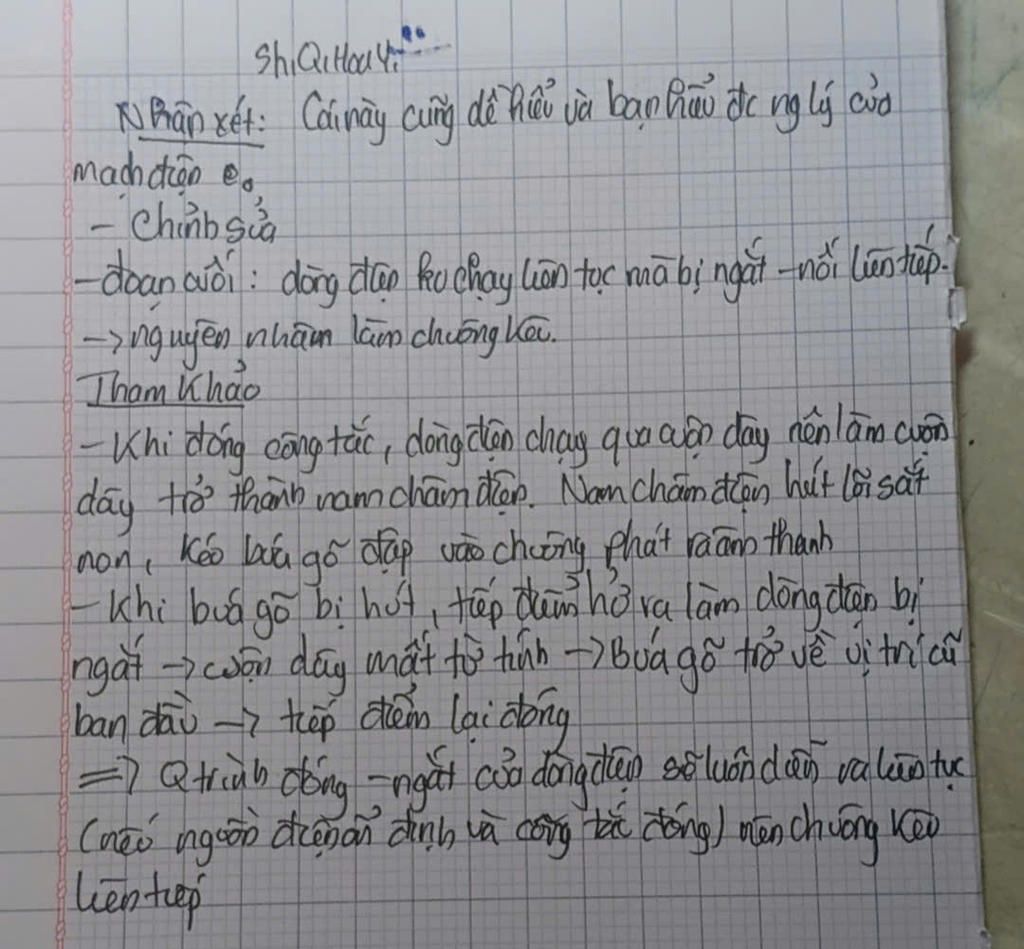 ShiQiHouYi
Nhận xét: Cái này cũng dễ hiểu và bạn hiểu đc ng lý của
mạch điện
- Chỉnh sửa
- đoạn cuối: dòng điện ko chạy liên tục mà bị ngắt - nối liên tiếp.
-> nguyên nhâm làm chuông kêu.
Tham Khảo
- Khi đóng công tắc, dòng điện chạy qua cuộn dây nên làm cuộn
dây trở thành nam châm điện. Nam châm điện hút lõi sắt
non, kéo búa gõ đập vào chuông phát ra âm thanh
- Khi búa gõ bị hút, tiếp điểm hở ra làm dòng điện bị
ngắt -> cuộn dây mất từ tính -> Búa gõ trở về vị trí cũ
ban đầu -> tiếp điểm lại đóng
=> Q trình đóng - ngắt của dòng điện sẽ luôn diễn ra liên tục
(nếu nguồn điện ổn định và công tắc đóng) nên chuông kêu
liên tiếp